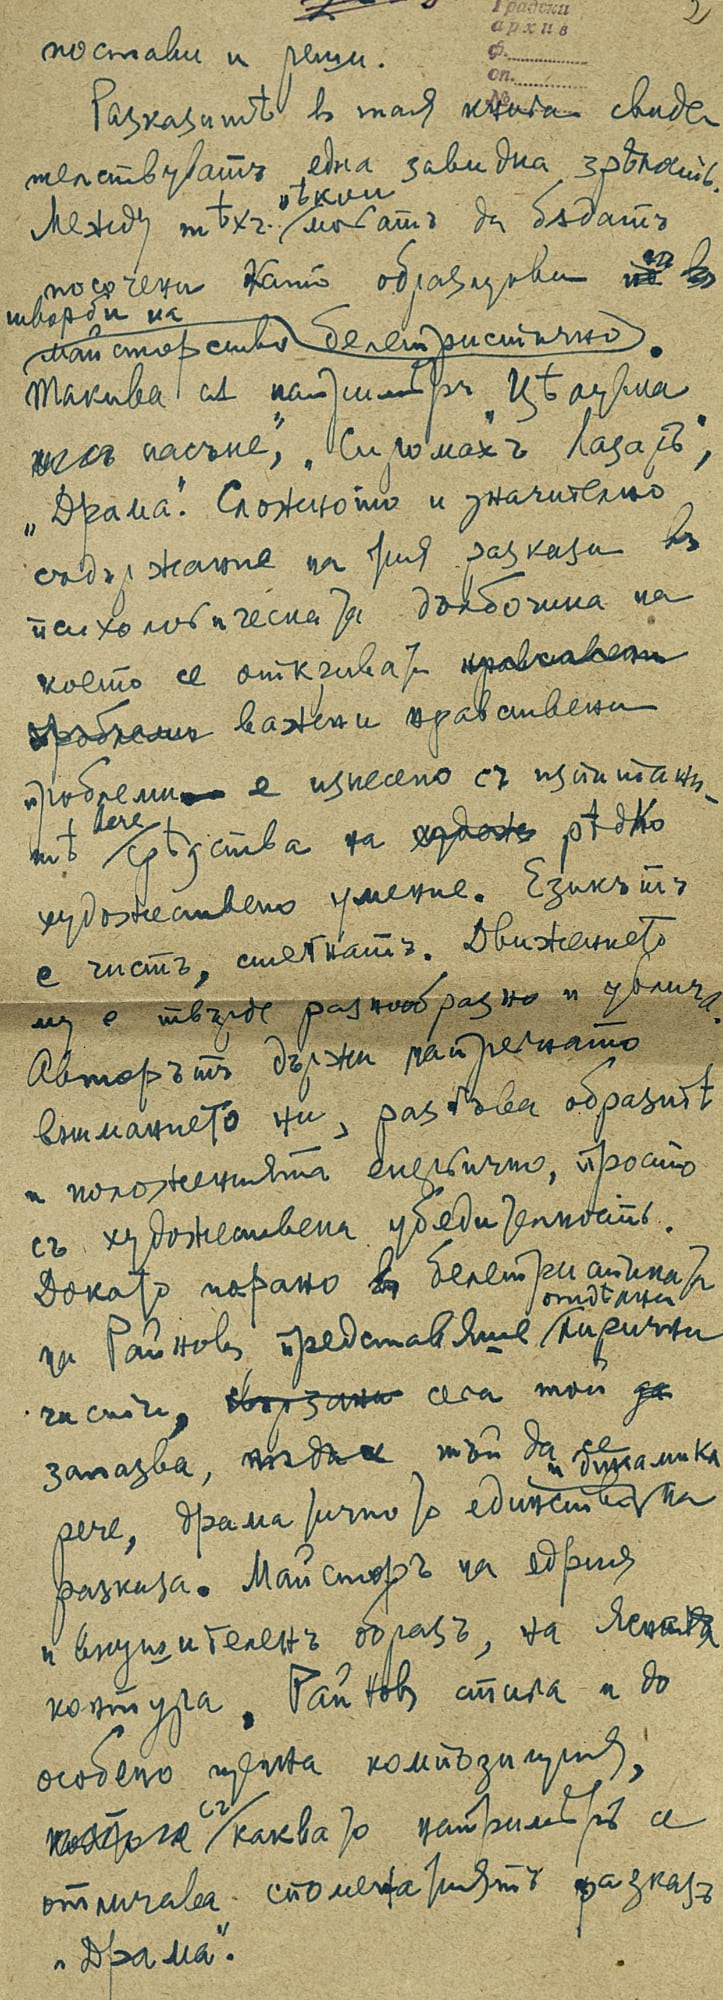 2
Градски
архив
ф.
оп.
№
постави и реши.
Разказитѣ в тая книга свиде
телствуватъ една завидна зрѣлость.
нѣкои
Между тѣхъ могатъ да бѫдатъ
посочени като образцови
творби на
майсторство белетристично.
Такива сѫ напримѣръ „Цѣлувка
насъне“, „Сиромахъ Лазаръ“,
„Драма“. Сложното и значително
съдържание на тия разкази въ
психологическата дълбочина на
което се откриват нравствени
проблеми важни нравствени
проблеми е изнесено съ изпитани-
вече
тѣ срѣдства на рѣдко
художествено умение. Езикътъ
е чистъ, стегнатъ. Движението
му е твърде разнообразно и
Авторътъ държи напрегнато
вниманието ни, разгъва образитѣ
и положенията енергично, просто
съ художествена убедителность.
Докато порано въ белетристиката
отдѣлни
на Райновъ представяше лирични
части, свързани сега той да
запазва, тъй да се
и динамика
рече, драматичното единство на
разказа. Майсторъ на едрия
и внушителенъ образъ, на ясната
контура, Райновъ стига и до
особено ценна композиция,
съ
която каквато напримѣръ се
отличава споменатиятъ разказъ
„Драма“.